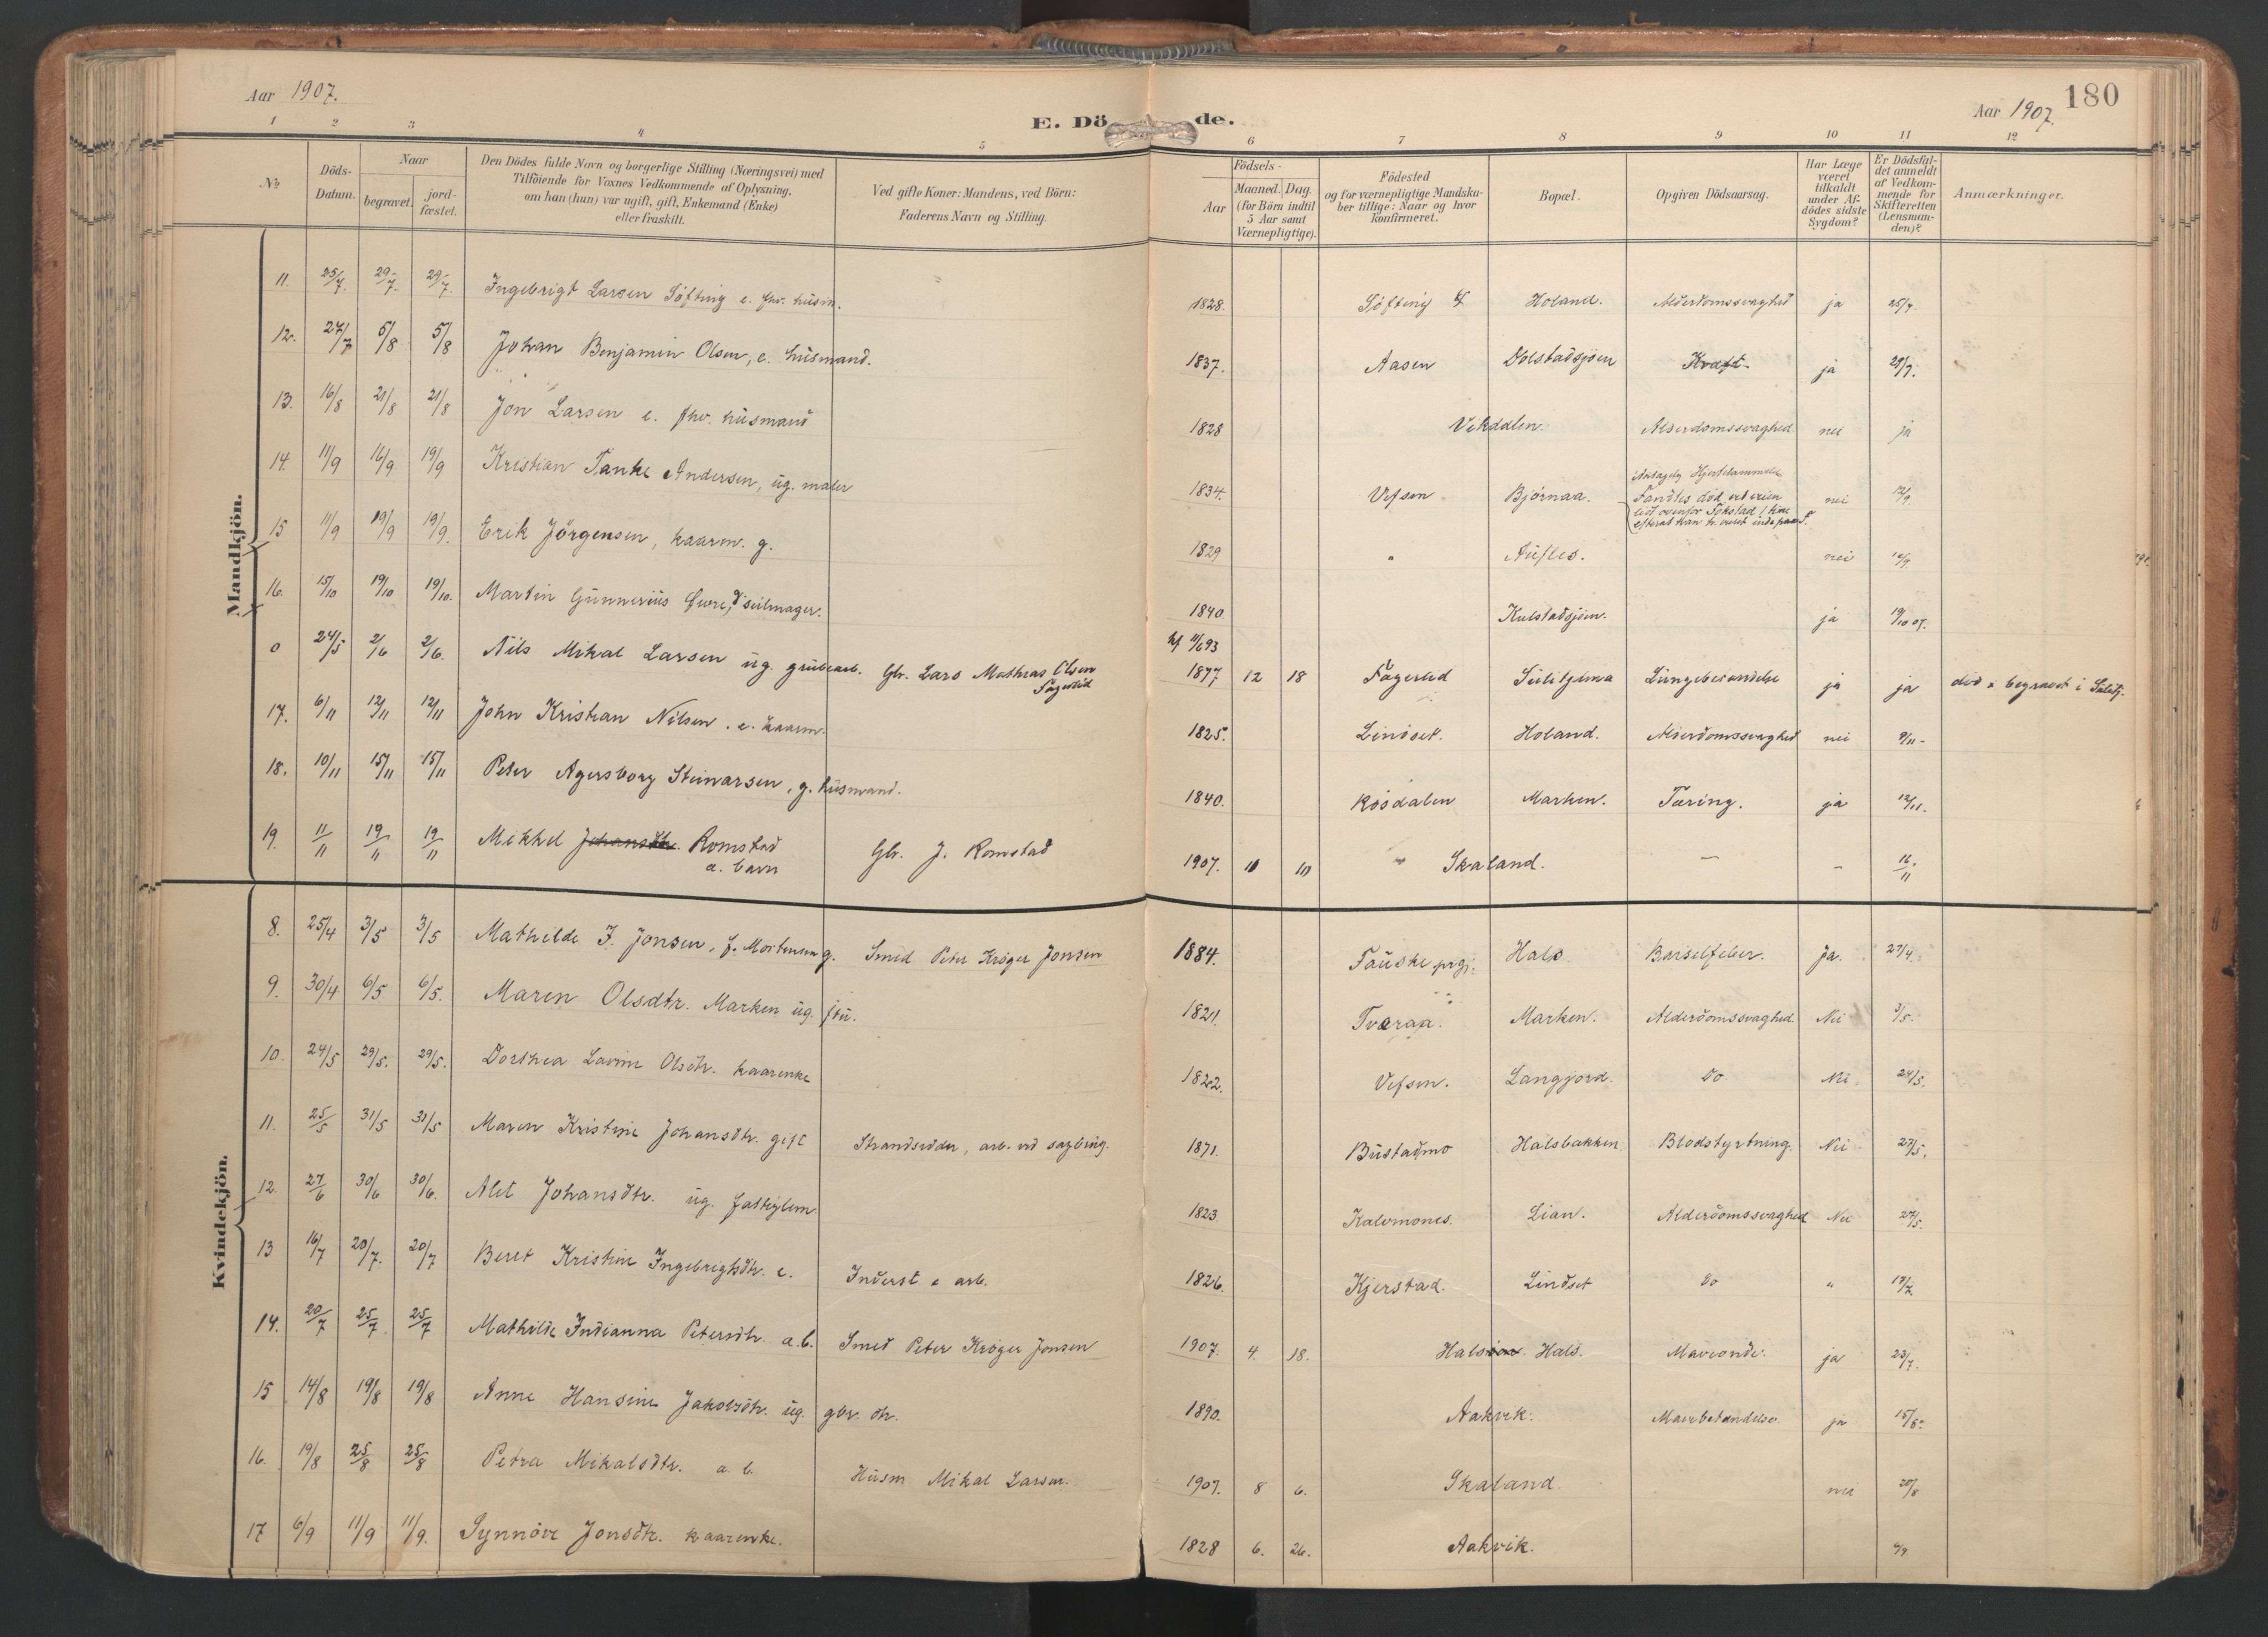 Aar 1907.
E. Dö de.
Aar 1907.
180
1 2 3 4 5 6 7 8 9 10 11 12
No
Döds-Datum.
Naar
begravet.
jord-fæstet.
Den Dödes fulde Navn og borgerlige Stilling (Næringsvei) med
Tilföiende for Voxnes Vedkommende af Oplysning,
om han (hun) var ugift, gift, Enkemand (Enke)
eller fraskilt.
Ved gifte Koner: Mandens, ved Börn:
Faderens Navn og Stilling.
Födsels-
Aar
Maaned. Dag.
(for Börn indtil
5 Aar samt
Værnepligtige).
Födested
og for værnepligtige Mandska-
ber tillige: Naar og hvor
konfirmeret.
Bopæl.
Opgiven Dödsaarsag.
Har Læge
været
tilkaldt
under Af-
dödes sidste
Sygdom?
Er Dödsfal-
det anmeldt
af Vedkom-
mende for
Skifteretten
(Lensman-
den)?
Anmærkninger.
Mandkjön.
11. 25/7. 29/7. 29/7. Ingebrigt Larsen Söfting e. fhv. husm. 1828. Söfting Holand. Alderdomssvaghed ja 25/7.
12. 27/7 5/8 5/8 Johan Benjamin Olsen, e. husmand. 1837. Aasen Dolstadsjöen ja 29/7.
13. 16/8 21/8 21/8 Jon Larsen e. fhv. husmand 1828 Vikdalen. Alderdomssvaghed nei ja
14. 11/9 16/9 19/9 Kristian Tanke Andersen, ug. maler 1834. Vefsen Björnaa. Hjertelammelse Fandtes död nei 12/9
15 11/9 19/9 19/9. Erik Jörgensen, kaarm. g. 1829 " Aufles. nei
16. 15/10 19/10 19/10. Martin Gunnerius seilmager. 1840. Kulstadsjöen. ja 19/10 07.
0 24/5 2/6 2/6. Nils Mikal Larsen ug. grubearb. Gbr. Lars Mathias Olsen Fagerlid 1877 12 18 Fagerlid Sulitjelma Lungebetændelse ja ja död & begravet i Sulitj.
17. 6/11 12/11 12/11 John Kristian Nilsen. e. kaarm. 1825. Lindset. Holand. Alderdomssvaghed nei 9/11
18. 10/11 15/11 15/11 Peter Agersborg Steinarsen, g. husmand. 1840. Rösdalen Marken. Tæring. ja 12/11.
19. 11/11 19/11 19/11 Mikkel Johansdtr. Romstad a. barn Gbr. J. Romstad 1907. 10 10 " Skaland. — – 16/11
Kvindekjön.
8. 25/4 3/5 3/5 Mathilde J. Jonsen, f. Mortensen g. Smed Peter Kröger Jonsen 1884. Fauske prgj. Hals Barselfeber. Ja. 27/4.
9. 30/4 6/5 6/5. Maren Olsdtr. Marken ug. 1821. Tveraa. Marken. Alderdomssvaghed. Nei 3/5.
10. 24/5 29/5. 29/5. Dorthea Lavine Olsdtr. kaarenke 1822. Vefsen. Langjord. Do Nei 24/5.
11. 25/5 31/5 31/5 Maren Kristine Johansdtr. gift Strandsidder, arb. ved sagbrug. 1871. Bustadmo Halsbakken Blodstyrtning. Nei 27/5.
12. 27/6 30/6 30/6. Alet Johansdtr. ug. fattiglem. 1823 Kalvmones. Lian. Alderdomssvaghed Nei 27/5.
13 16/7 20/7. 20/7 Beret Kristine Ingebregtsdtr. e. Inderst & arb. 1826. Kjerstad. Lindset Do " 17/7.
14. 20/7 25/7 25/7 Mathilde Indianna Petersdtr. a. b. Smed Peter Kröger Jonsen 1907. 4. 18. Hals. Maveonde. ja 23/7.
15 14/8 19/8 19/8 Anne Hansine Jakobsdtr. ug. gbr. dtr. 1890. Aakvik. Mavebetændelse ja 15/8.
16. 19/8 25/8 25/8 Petra Mikalsdtr. a. b. Husm Mikal Larsen. 1907. 8 6. Skaland. nei 20/8
17 6/9 11/9 11/9. Synnöve Jonsdtr. kaarenke. 1828 6. 26. Aakvik.